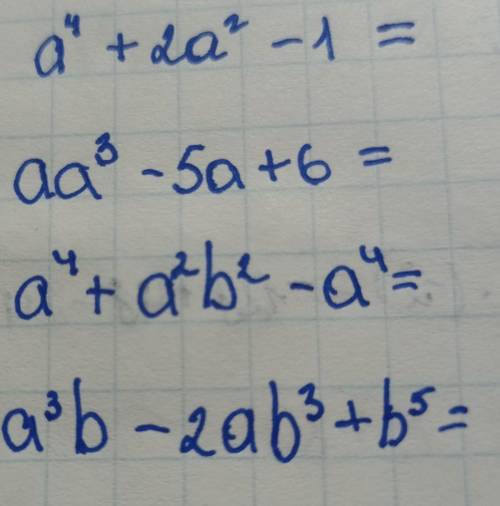 a⁴ + 2a² - 1 =
aa³ - 5a + 6 =
a⁴ + a²b² - a⁴ =
a³b - 2ab³ + b⁵ =